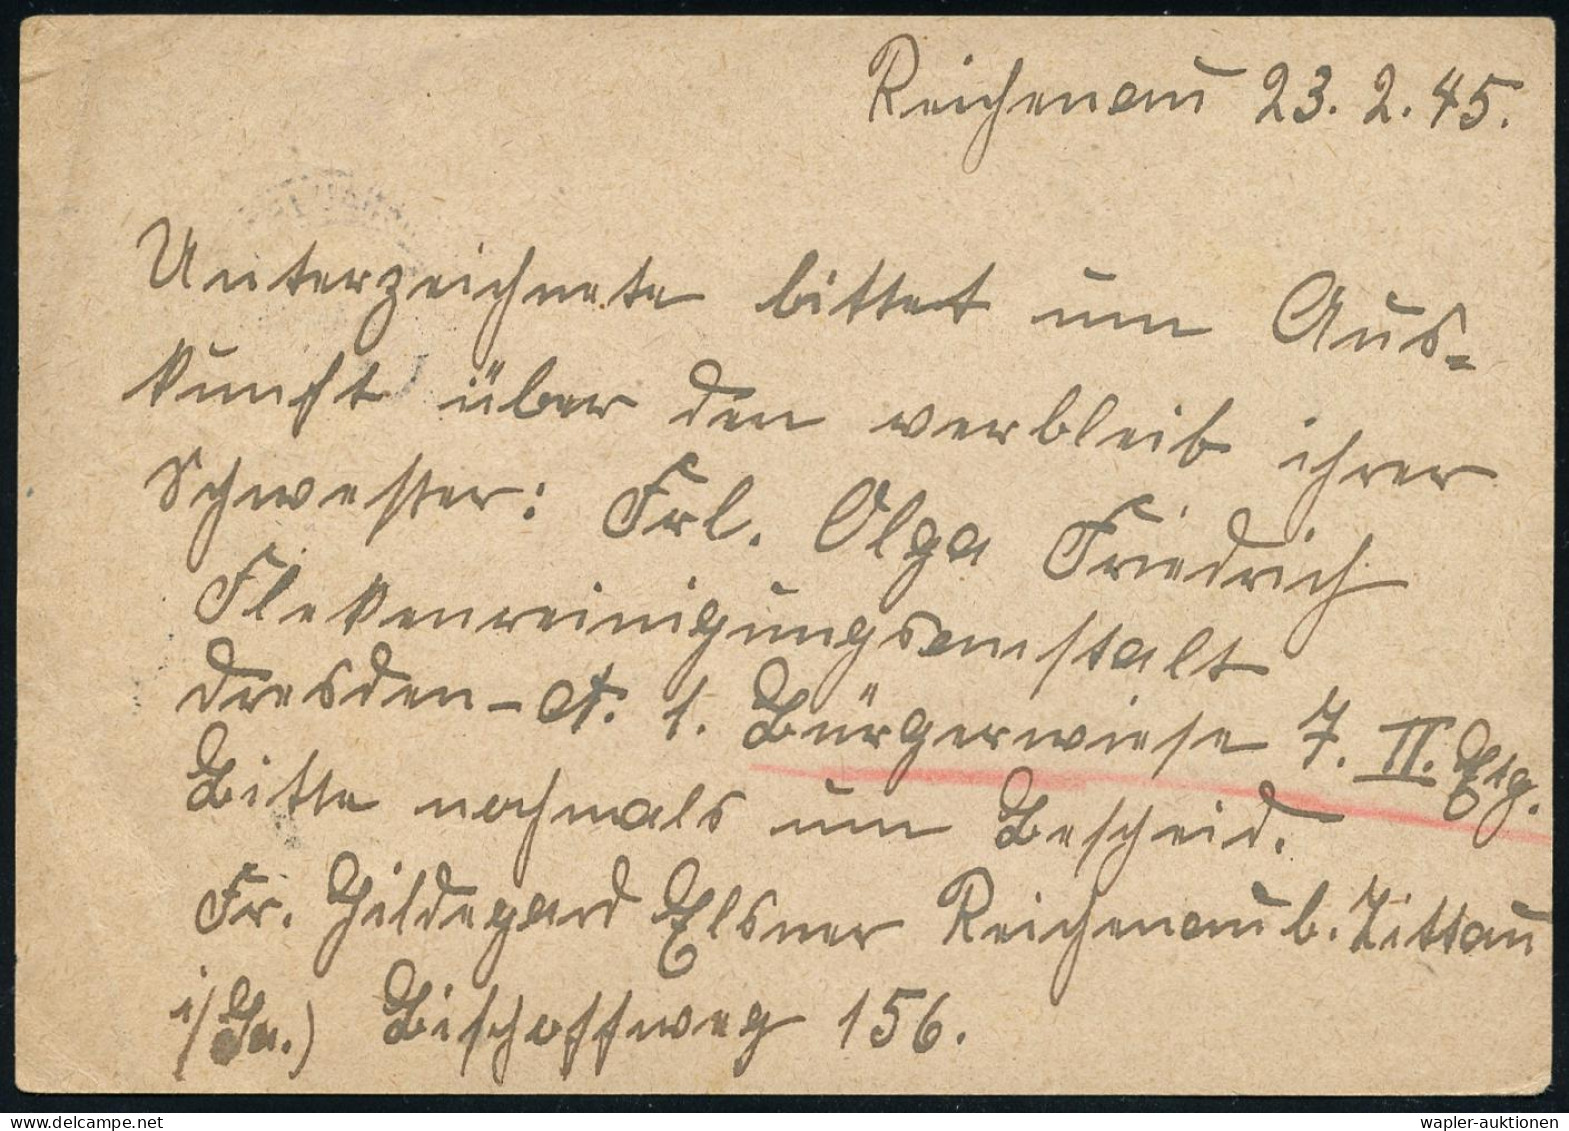 Reichenau 23. 2. 45.
Unterzeichnete bittet um Aus=
kunft über den verbleib ihrer
Schwester: Frl. Olga Friedrich
Flekenreinigungsanstalt
Dresden-A. 1. Bürgerwiese 7. II. Etg.
Bitte nochmals um Bescheid.
Fr. Hildegard Elsner Reichenau b. Zittau
i/Sa.) Bischoffweg 156.
wapler-auktionen